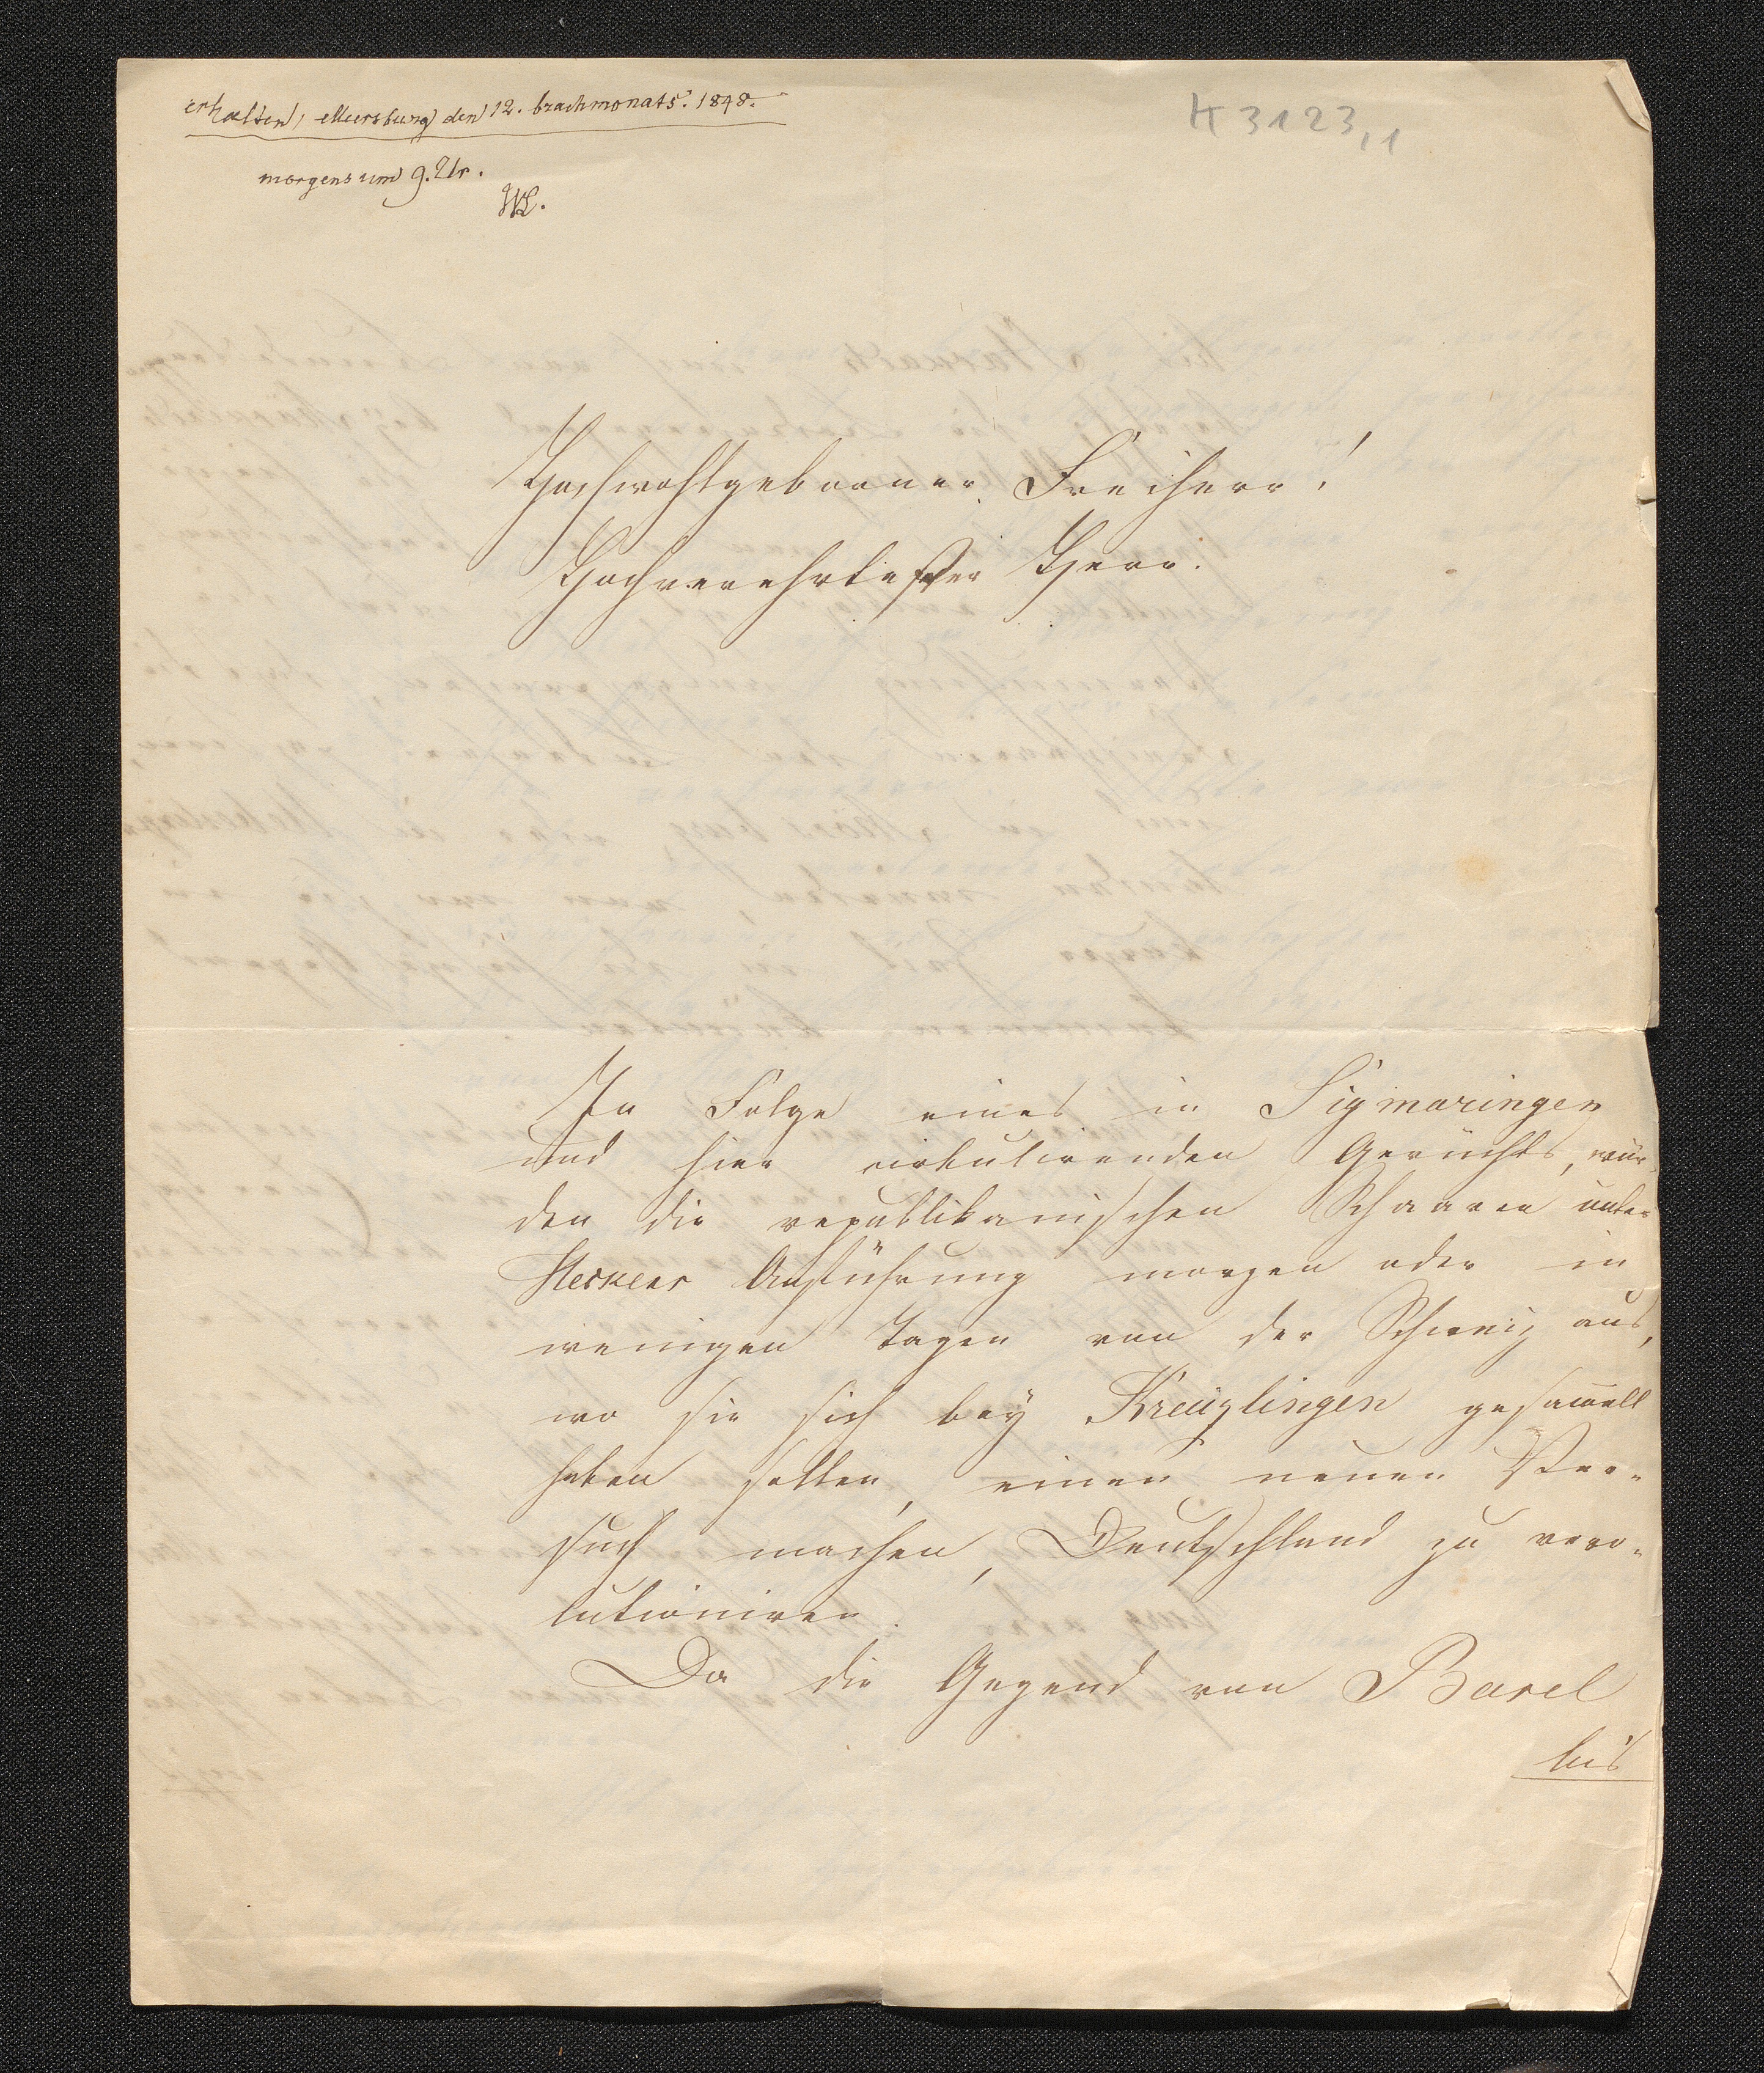 erhalten, Meersburg den 12. brachmonats. 1848.
K 3123,1
morgens um 9. Ur.
Hochwohlgeborner Freiherr!
Hochverehrtester Herr.
In Folge eines in Sigmaringen
und hier cirkulirenden Gerüchts, wür-
den die republikanischen Schaaren unter
Heckers Anführung morgen oder in
wenigen Tagen von der Schweiz aus,
wo sie sich bey Kreuzlingen gesam̅elt
haben sollen, einen neuen Ver-
such machen, Deutschland zu revo-
lutioniren.
Da die Gegend von Basel
bis